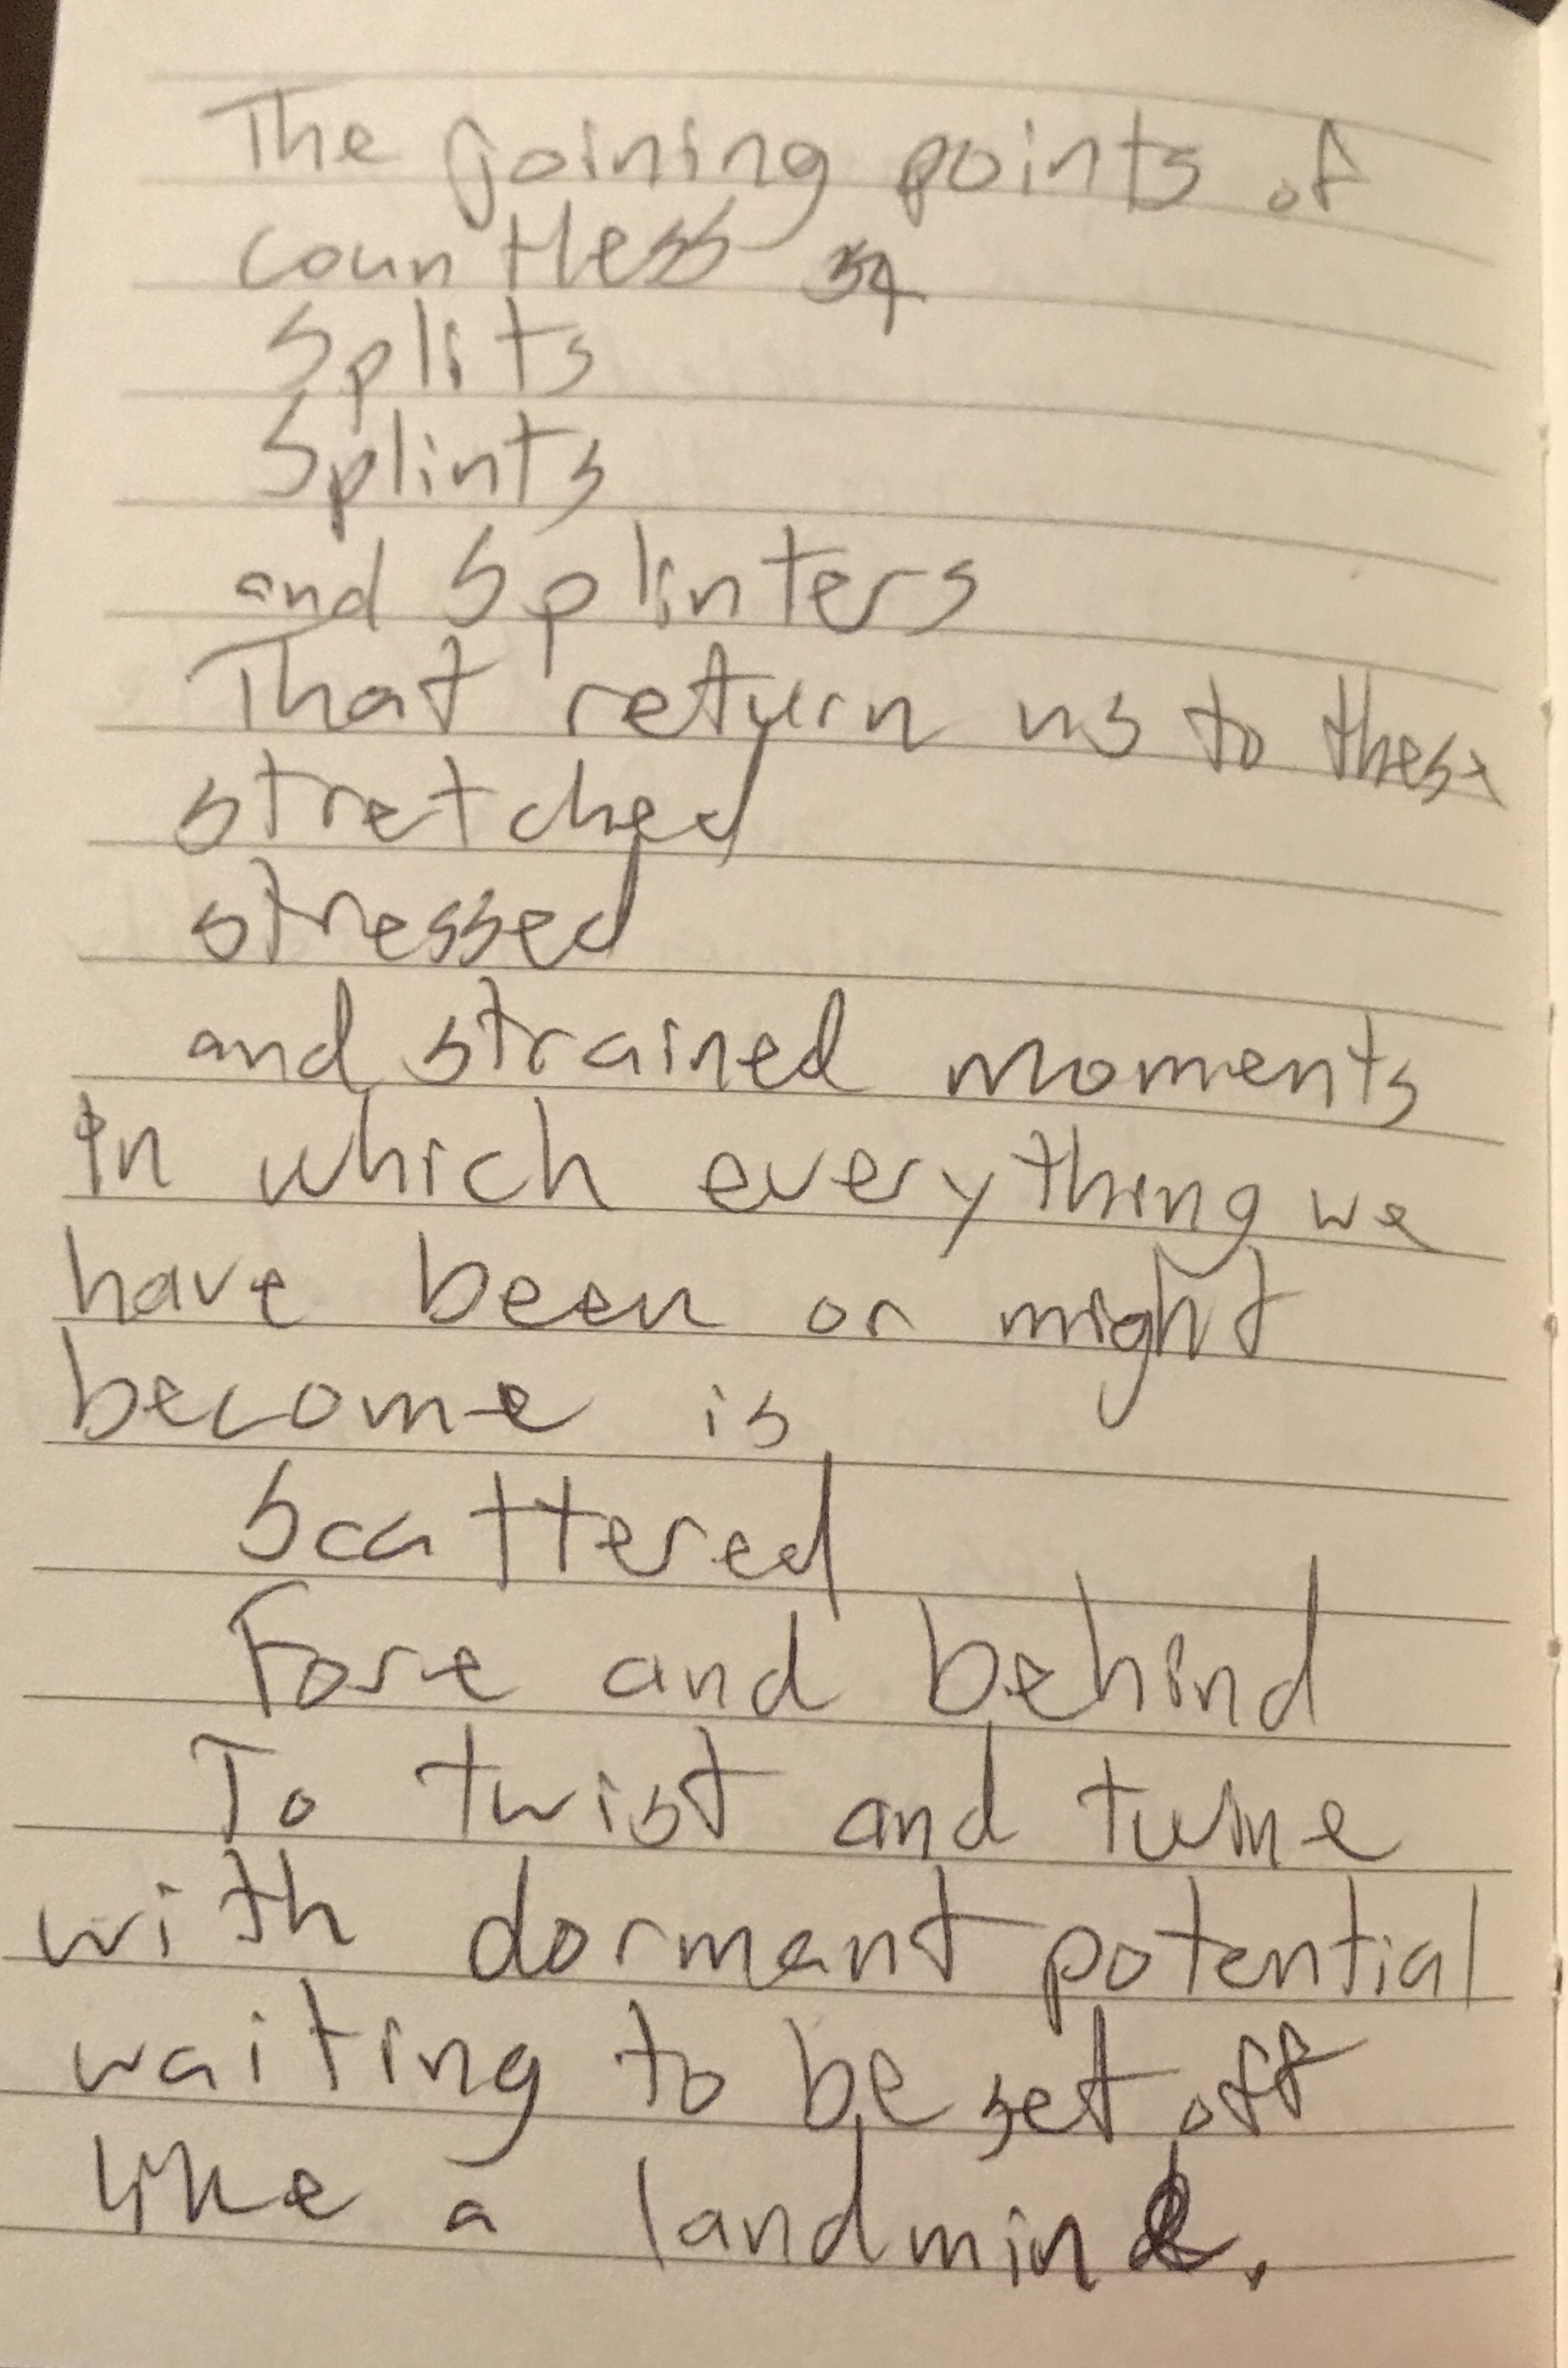 The joining points of
countless
Splits
Splints
and Splinters
That return us to these
stretched
stressed
and strained moments
in which everything we
have been or might
become is
Scattered
Fore and behind
To twist and twine
with dormant potential
waiting to be set off
like a landmine.